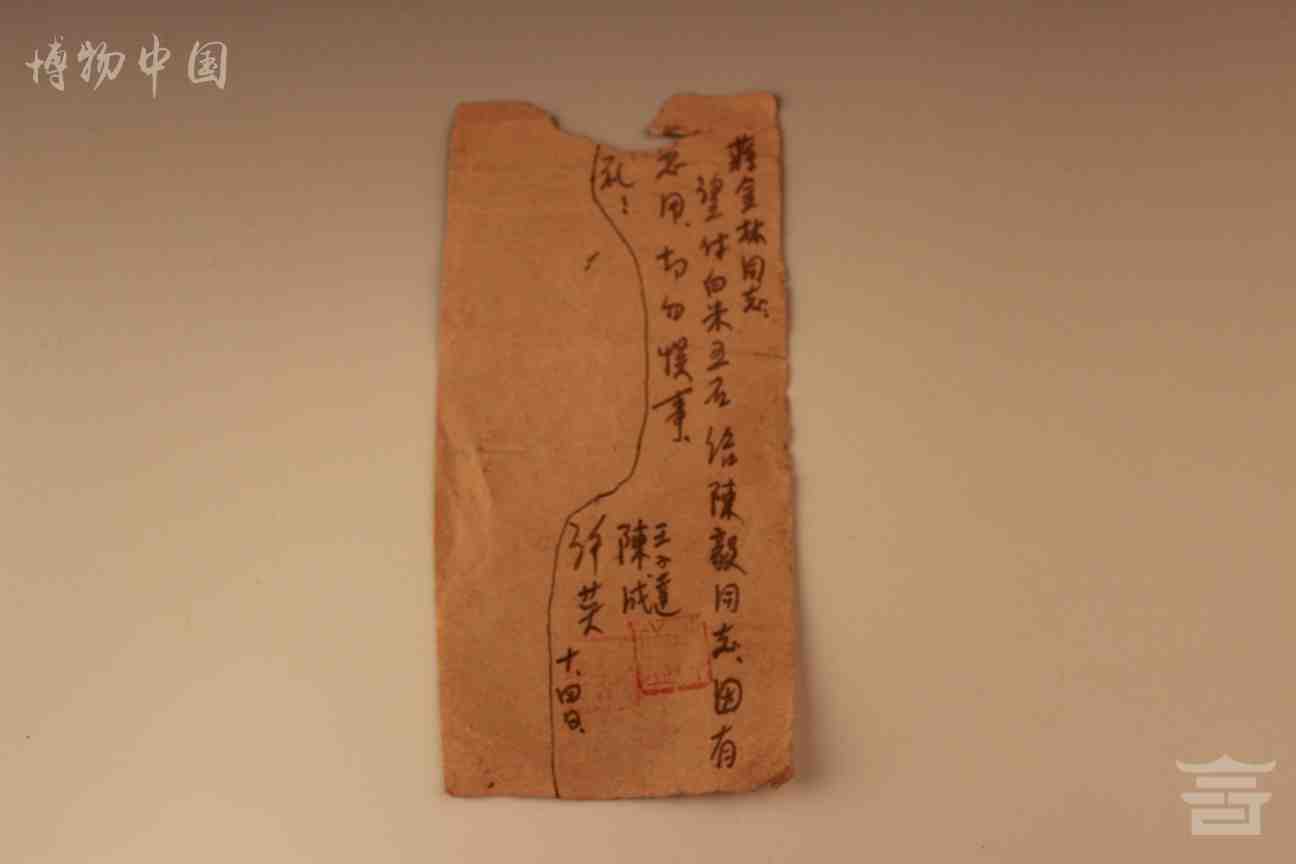 博物中国
蒋金林同志：
望付白米五石给陳毅同志、因有
急用、切勿悮事、
礼！
王子達
陳成
许英
十、四日、